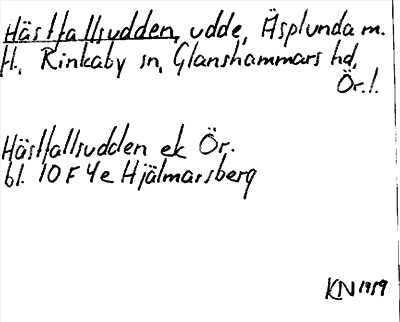 Hästfallsudden, udde, Äsplunda m.
fl., Rinkaby sn, Glanshammars hd,
Ör.l.
Hästfallsudden ek Ör.
bl. 10 F 4e Hjälmarsberg
KN 1959